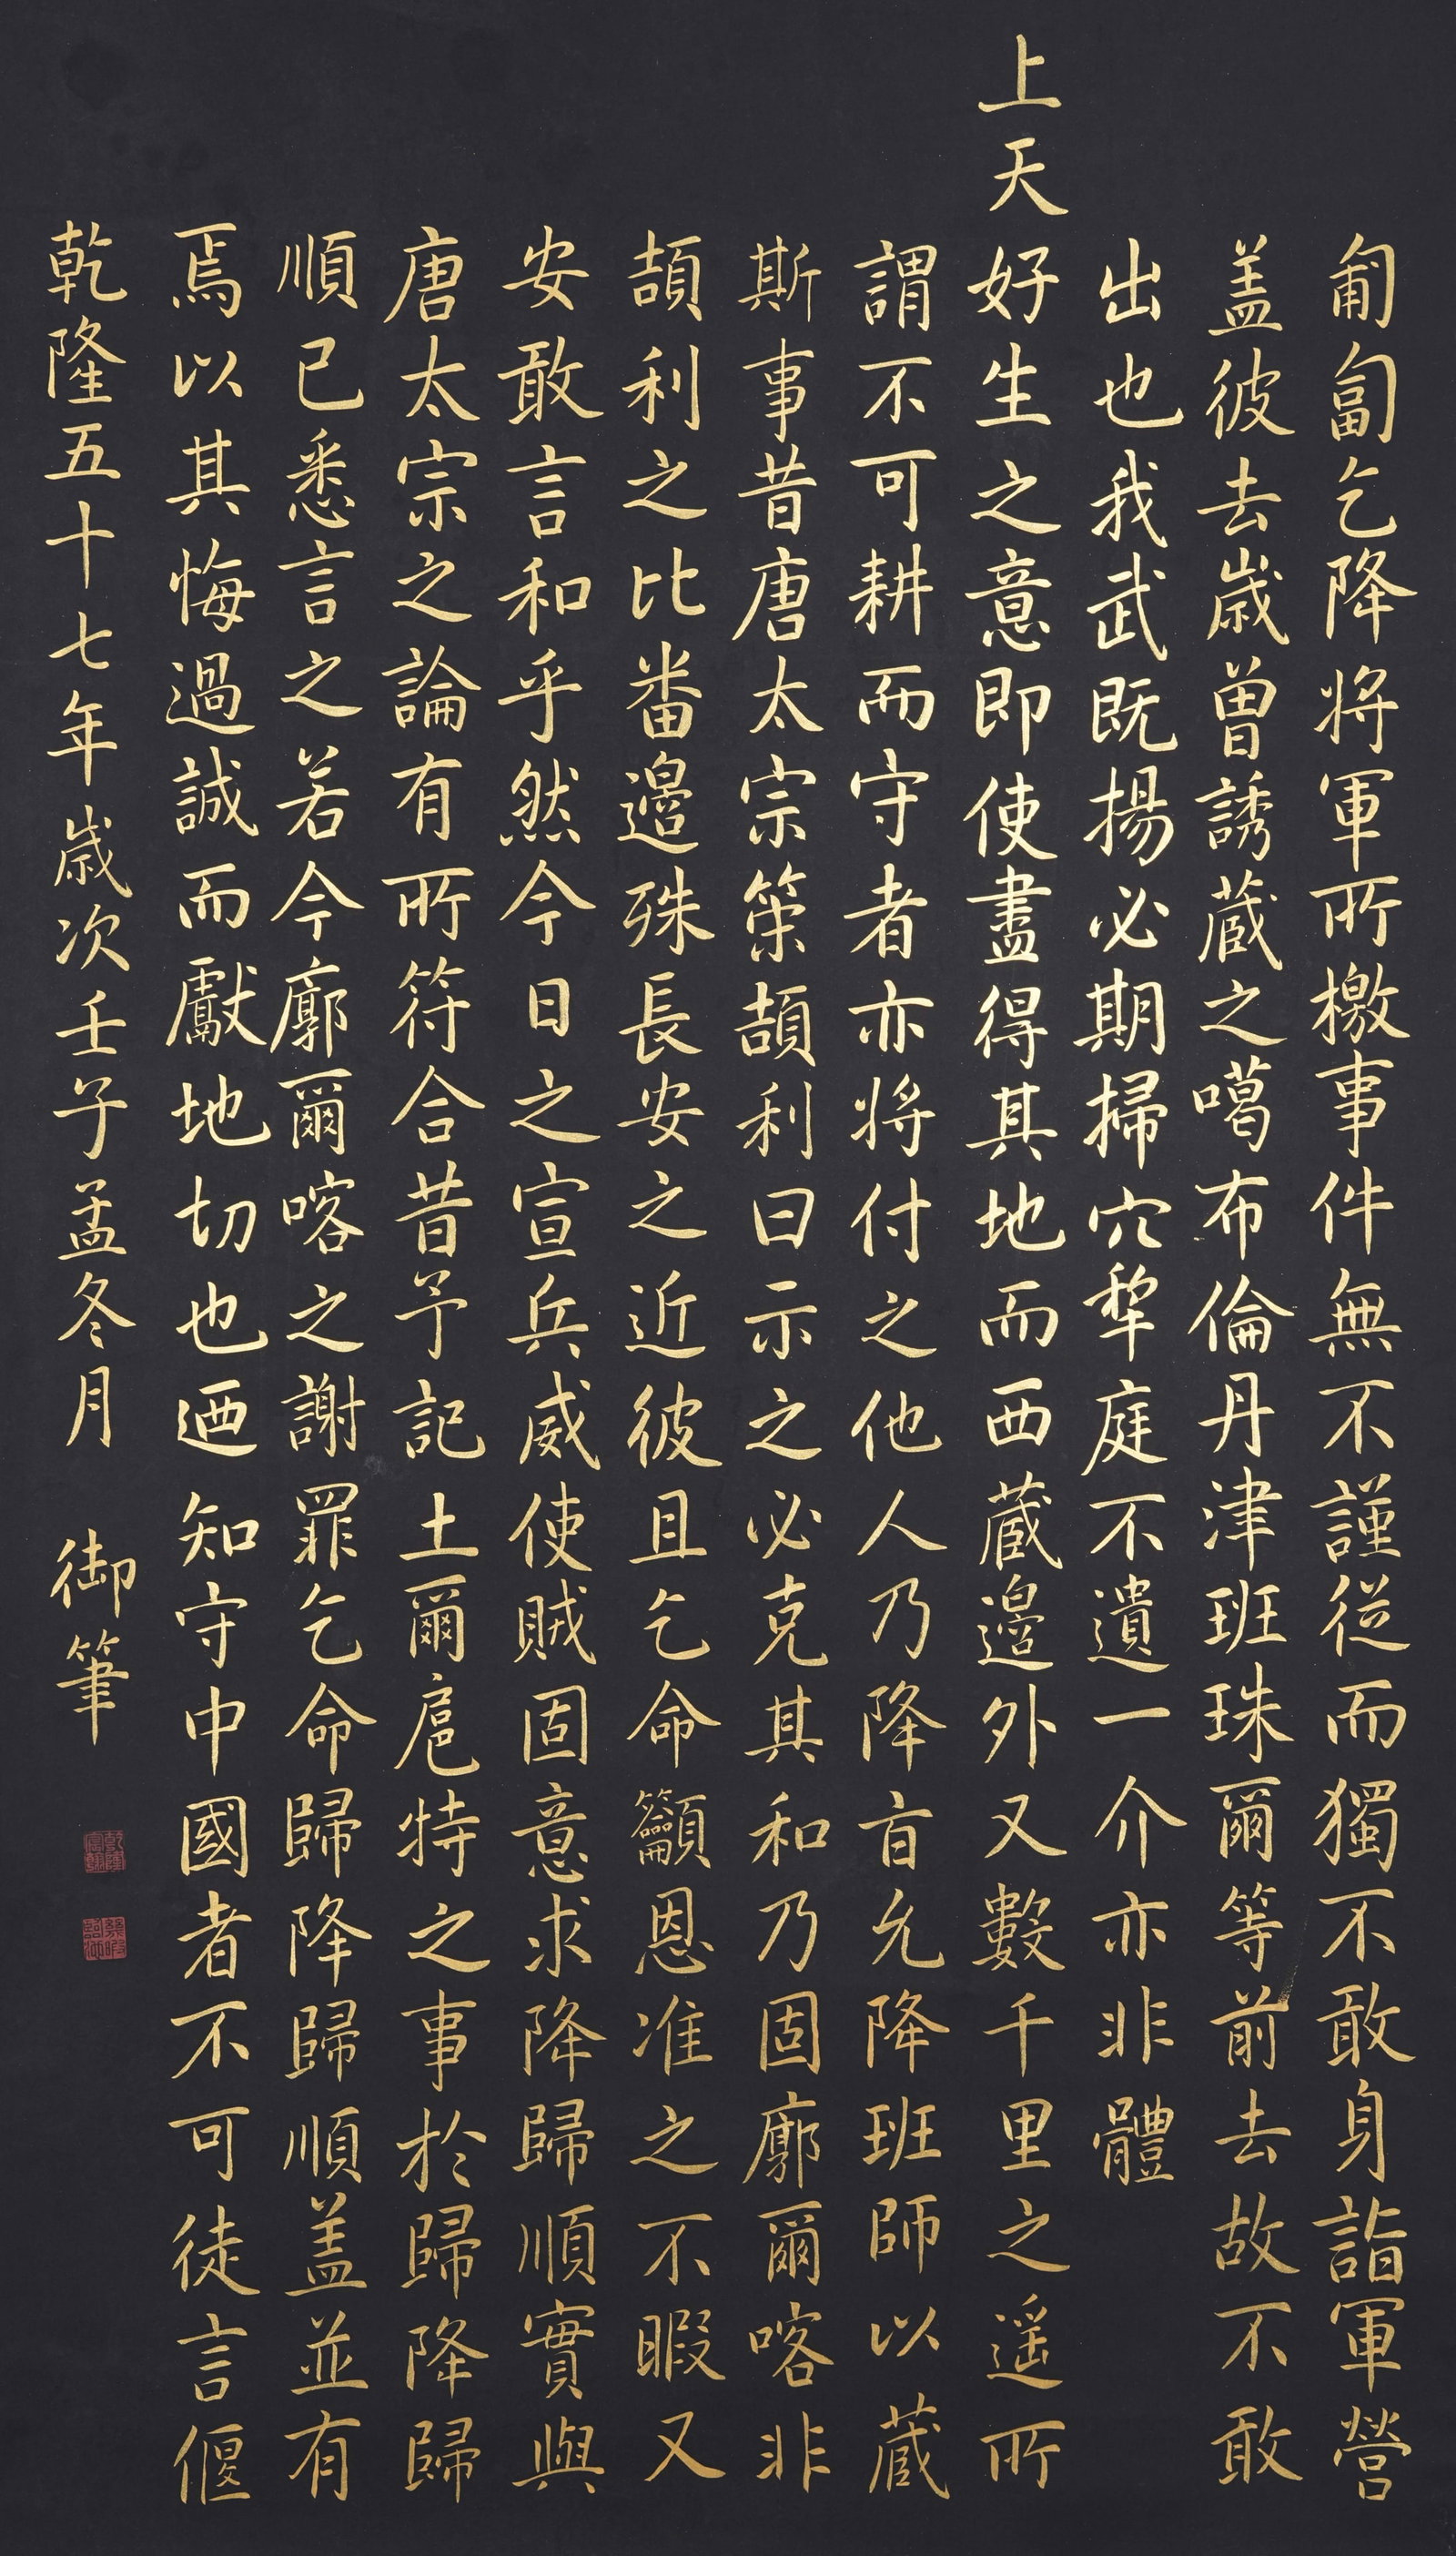 匍匐乞降將軍所檄事件無不謹從而獨不敢身詣軍營
盖彼去歲曾誘藏之噶布倫丹津班珠爾等前去故不敢
出也我武既揚必期掃穴犂庭不遺一介亦非體
上天好生之意即使盡得其地而西藏邊外又數千里之遥所
謂不可耕而守者亦將付之他人乃降㫖允降班師以蔵
斯事昔唐太宗策頡利曰示之必克其和乃固廓爾喀非
頡利之比番邊殊長安之近彼且乞命籲恩准之不暇又
安敢言和乎然今日之宣兵威使賊固意求降歸順實與
唐太宗之論有所符合昔予記土爾扈特之事於歸降歸
順已悉言之若今廓爾喀之謝罪乞命歸降歸順盖並有
焉以其悔過誠而獻地切也迺知守中國者不可徒言偃
乾隆五十七年歲次壬子孟冬月 御筆